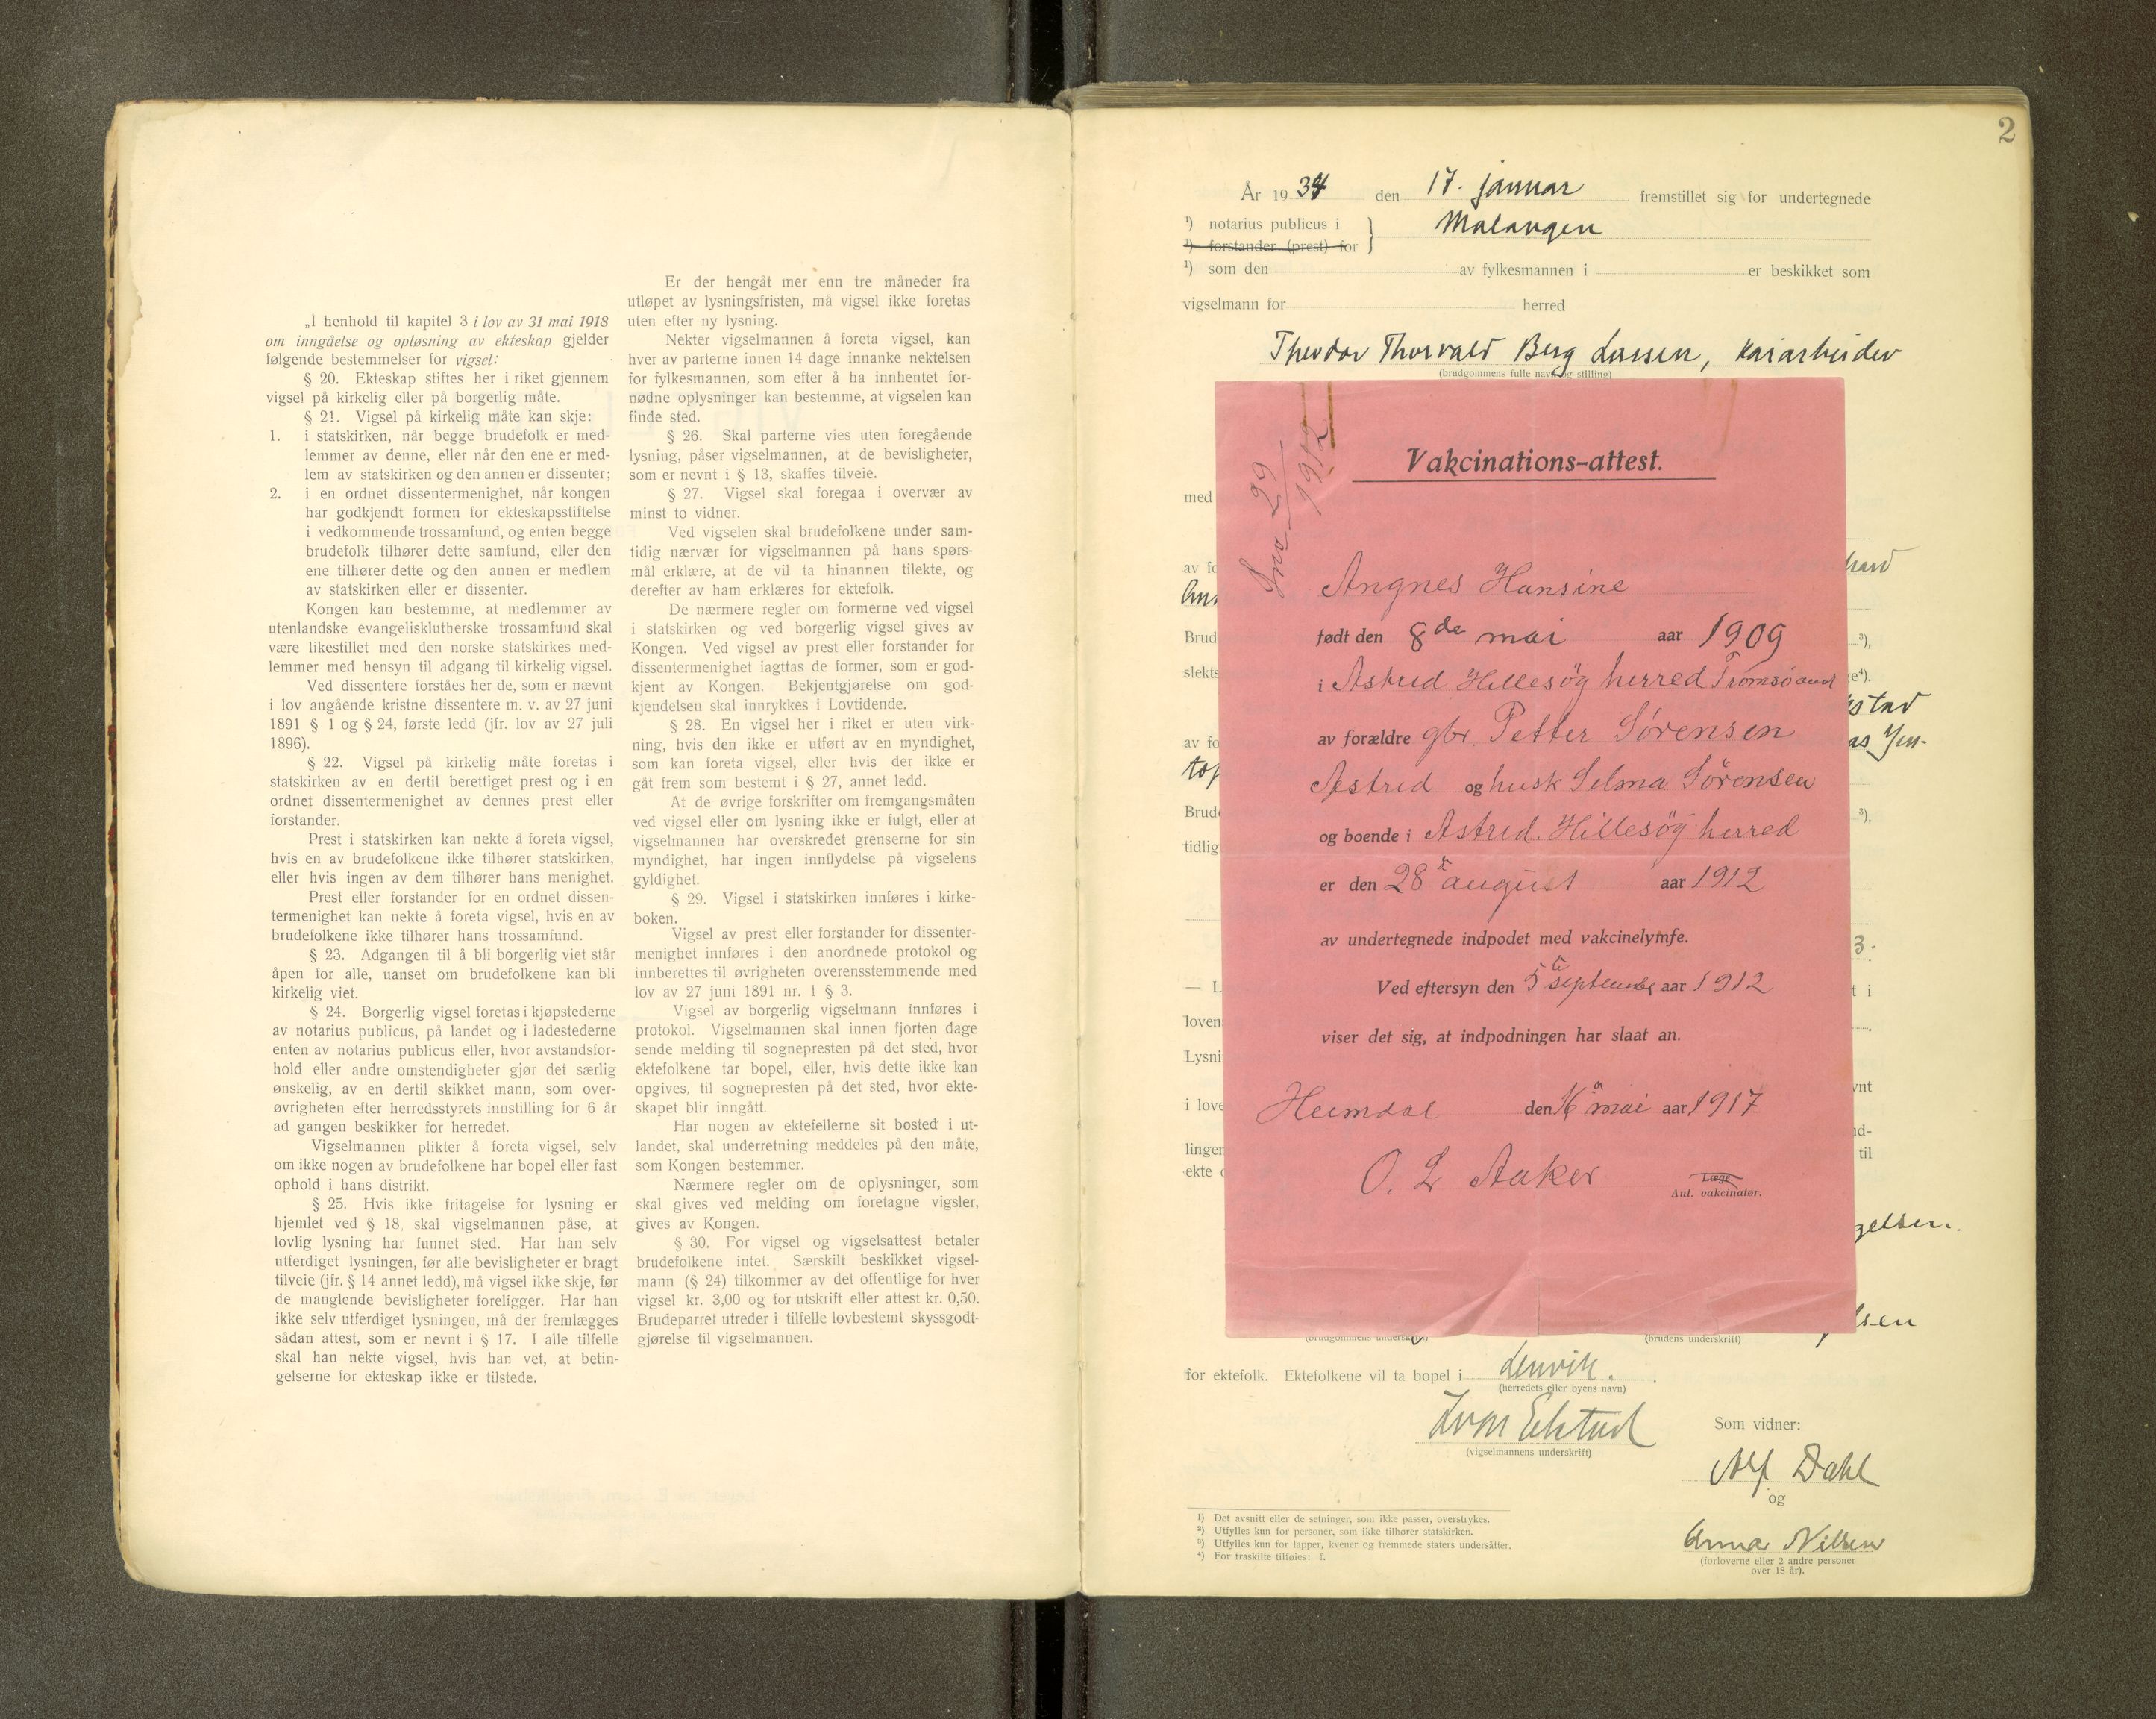 „I henhold til kapitel 3 i lov av 31 mai 1918
om inngåelse og opløsning av ekteskap gjelder
følgende bestemmelser for vigsel:
§ 20. Ekteskap stiftes her i riket gjennem
vigsel på kirkelig eller på borgerlig måte.
§ 21. Vigsel på kirkelig måte kan skje:
1. i statskirken, når begge brudefolk er med-
lemmer av denne, eller når den ene er med-
lem av statskirken og den annen er dissenter;
2. i en ordnet dissentermenighet, når kongen
har godkjendt formen for ekteskapsstiftelse
i vedkommende trossamfund, og enten begge
brudefolk tilhører dette samfund, eller den
ene tilhører dette og den annen er medlem
av statskirken eller er dissenter.
Kongen kan bestemme, at medlemmer av
utenlandske evangelisklutherske trossamfund skal
være likestillet med den norske statskirkes med-
lemmer med hensyn til adgang til kirkelig vigsel.
Ved dissentere forståes her de, som er nævnt
i lov angående kristne dissentere m. v. av 27 juni
1891 § 1 og § 24, første ledd (jfr. lov av 27 juli
1896).
§ 22. Vigsel på kirkelig måte foretas i
statskirken av en dertil berettiget prest og i en
ordnet dissentermenighet av dennes prest eller
forstander.
Prest i statskirken kan nekte å foreta vigsel,
hvis en av brudefolkene ikke tilhører statskirken,
eller hvis ingen av dem tilhører hans menighet.
Prest eller forstander for en ordnet dissen-
termenighet kan nekte å foreta vigsel, hvis en av
brudefolkene ikke tilhører hans trossamfund.
§ 23. Adgangen til å bli borgerlig viet står
åpen for alle, uanset om brudefolkene kan bli
kirkelig viet.
§ 24. Borgerlig vigsel foretas i kjøpstederne
av notarius publicus, på landet og i ladestederne
enten av notarius publicus eller, hvor avstandsfor-
hold eller andre omstendigheter gjør det særlig
ønskelig, av en dertil skikket mann, som over-
øvrigheten efter herredsstyrets innstilling for 6 år
ad gangen beskikker for herredet.
Vigselmannen plikter å foreta vigsel, selv
om ikke nogen av brudefolkene har bopel eller fast
ophold i hans distrikt.
§ 25. Hvis ikke fritagelse for lysning er
hjemlet ved § 18, skal vigselmannen påse, at
lovlig lysning har funnet sted. Har han selv
utferdiget lysningen, før alle bevisligheter er bragt
tilveie (jfr. § 14 annet ledd), må vigsel ikke skje, før
de manglende bevisligheter foreligger. Har han
ikke selv utferdiget lysningen, må der fremlægges
sådan attest, som er nevnt i § 17. I alle tilfelle
skal han nekte vigsel, hvis han vet, at betin-
gelserne for ekteskap ikke er tilstede.
Er der hengåt mer enn tre måneder fra
utløpet av lysningsfristen, må vigsel ikke foretas
uten efter ny lysning.
Nekter vigselmannen å foreta vigsel, kan
hver av parterne innen 14 dage innanke nektelsen
for fylkesmannen, som efter å ha innhentet for-
nødne oplysninger kan bestemme, at vigselen kan
finde sted.
§ 26. Skal parterne vies uten foregående
lysning, påser vigselmannen, at de bevisligheter,
som er nevnt i § 13, skaffes tilveie.
§ 27. Vigsel skal foregaa i overvær av
minst to vidner.
Ved vigselen skal brudefolkene under sam-
tidig nærvær for vigselmannen på hans spørs-
mål erklære, at de vil ta hinannen tilekte, og
derefter av ham erklæres for ektefolk.
De nærmere regler om formerne ved vigsel
i statskirken og ved borgerlig vigsel gives av
Kongen. Ved vigsel av prest eller forstander for
dissentermenighet iagttas de former, som er god-
kjent av Kongen. Bekjentgjørelse om god-
kjendelsen skal innrykkes i Lovtidende.
§ 28. En vigsel her i riket er uten virk-
ning, hvis den ikke er utført av en myndighet,
som kan foreta vigsel, eller hvis der ikke er
gåt frem som bestemt i § 27, annet ledd.
At de øvrige forskrifter om fremgangsmåten
ved vigsel eller om lysning ikke er fulgt, eller at
vigselmannen har overskredet grenserne for sin
myndighet, har ingen innflydelse på vigselens
gyldighet.
§ 29. Vigsel i statskirken innføres i kirke-
boken.
Vigsel av prest eller forstander for dissenter-
menighet innføres i den anordnede protokol og
innberettes til øvrigheten overensstemmende med
lov av 27 juni 1891 nr. 1 § 3.
Vigsel av borgerlig vigselmann innføres i
protokol. Vigselmannen skal innen fjorten dage
sende melding til sognepresten på det sted, hvor
ektefolkene tar bopel, eller, hvis dette ikke kan
opgives, til sognepresten på det sted, hvor ekte-
skapet blir inngått.
Har nogen av ektefellerne sit bosted i ut-
landet, skal underretning meddeles på den måte,
som Kongen bestemmer.
Nærmere regler om de oplysninger, som
skal gives ved melding om foretagne vigsler,
gives av Kongen.
§ 30. For vigsel og vigselsattest betaler
brudefolkene intet. Særskilt beskikket vigsel-
mann (§ 24) tilkommer av det offentlige for hver
vigsel kr. 3,00 og for utskrift eller attest kr. 0,50.
Brudeparret utreder i tilfelle lovbestemt skyssgodt-
gjørelse til vigselmannen.
2
År 1934 den 17. januar fremstillet sig for undertegnede
¹) notarius publicus i } Malangen
¹) forstander (prest) for
¹) som den av fylkesmannen i er beskikket som
vigselmann for herred
Theodor Thorvald Berg Larsen, kaiarbeider
(brudgommens fulle navn og stilling)
med
av fo
Brud ³),
slekts e⁴).
stad
av fo
Brude ³),
tidlig
3.
— L t i
loven
Lysni
vnt
i love
nd-
linger til
ekte
gelsen.
lsen
Vakcinations-attest.
29
1912
Angnes Hansine
født den 8de mai aar 1909
i Astrid Hillesöy herred Tromsö amt
av forældre gbr. Petter Sörensen
Astrid og husk Selma Sörensen
og boende i Astrid. Hillesöy herred
er den 28 august aar 1912
av undertegnede indpodet med vakcinelymfe.
Ved eftersyn den 5 september aar 1912
viser det sig, at indpodningen har slaat an.
Heimdal den 16 mai aar 1917
O. L. Aaker
Læge.
Aut. vakcinatør.
(brudgommens underskrift) (brudens underskrift)
for ektefolk. Ektefolkene vil ta bopel i Lenvik.
(herredets eller byens navn)
(vigselmannens underskrift)
Som vidner:
Alf Dahl
og
Anna Nilsen
(forloverne eller 2 andre personer
over 18 år).
¹) Det avsnitt eller de setninger, som ikke passer, overstrykes.
²) Utfylles kun for personer, som ikke tilhører statskirken.
³) Utfylles kun for lapper, kvener og fremmede staters undersåtter.
⁴) For fraskilte tilføies: f.